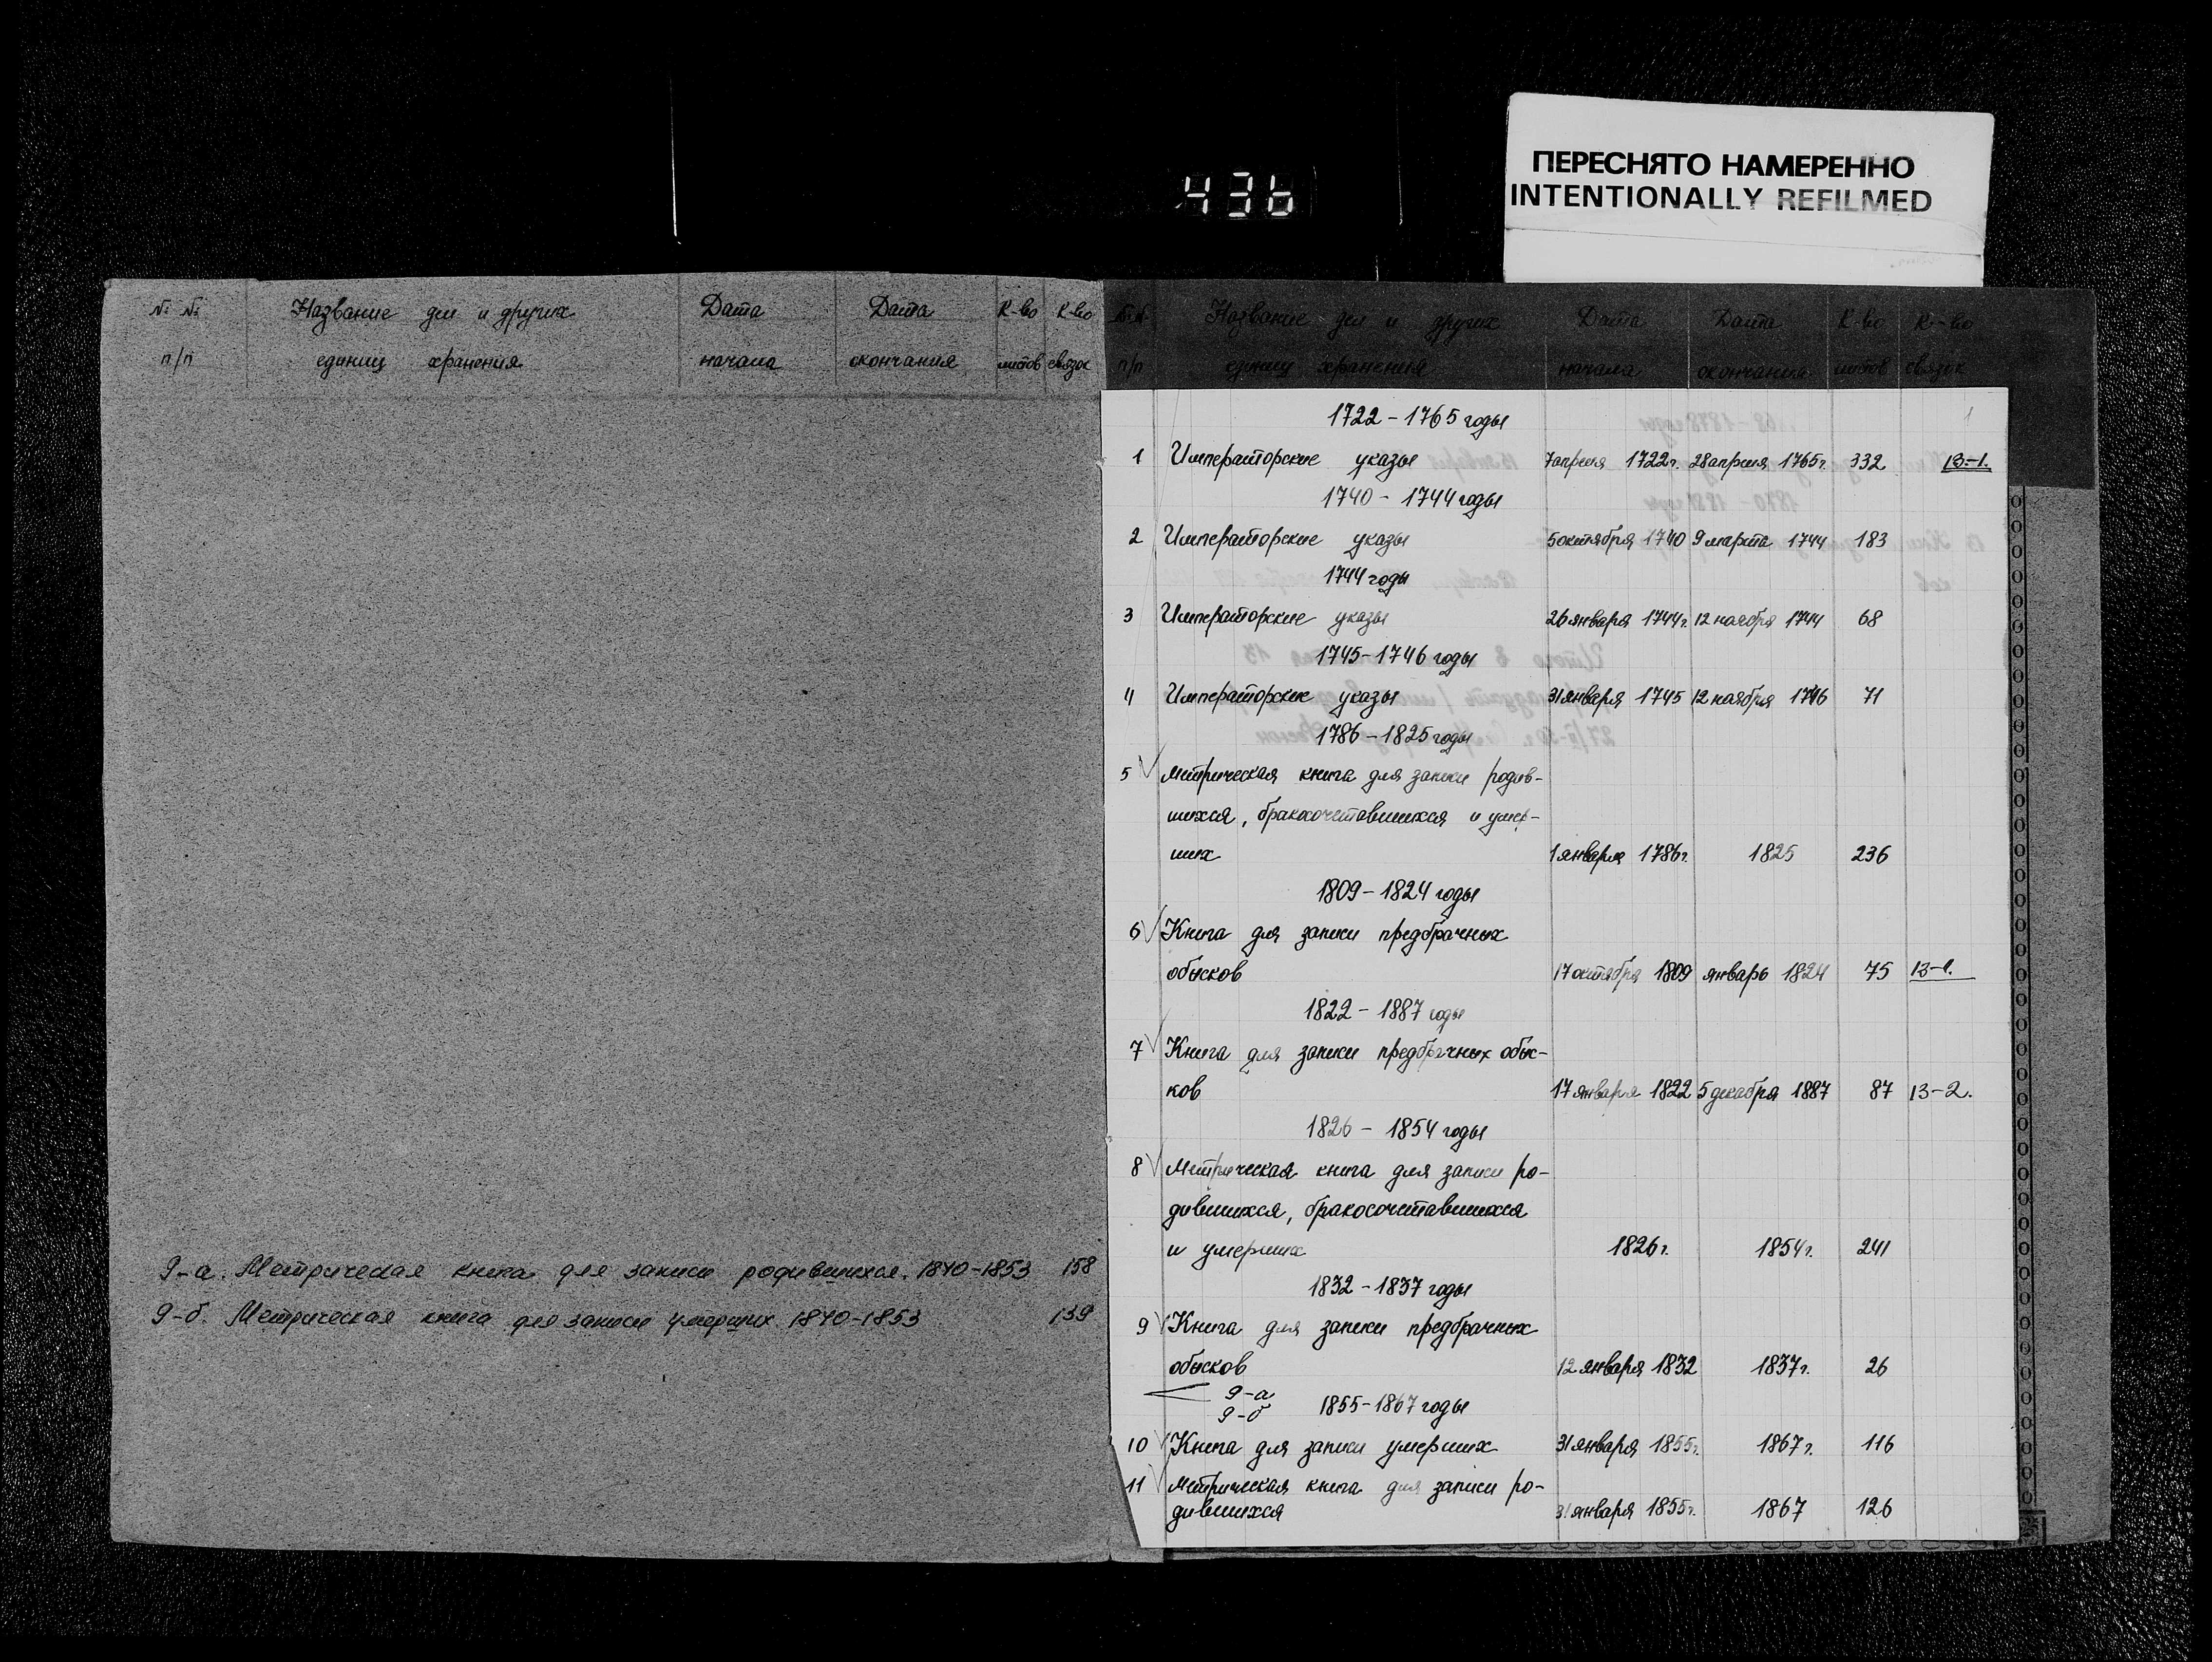 ПЕРЕСНЯТО НАМЕРЕННО
INTENTIONALLY REFILMED
436
№ № Название дел и других Дата Дата К-во К-во
п/п единиц хранения начала окончания листов связок
9-а. Метрическая книга для записи родившихся. 1840-1853 158
9-б. Метрическая книга для записи умерших 1840-1853 139
№№ Название дел и других Дата Дата К-во К-во
п/п единиц хранения начала окончания листов связок
1
1722 - 1765 годы
1 Императорские указы 7 апреля 1722 г. 28 апреля 1765 г. 332 13-1.
1740 - 1744 годы
2 Императорские указы 5 октября 1740 9 марта 1744 183
1744 годы
3 Императорские указы 26 января 1744 г. 12 ноября 1744 68
1745-1746 годы
4 Императорские указы 31 января 1745 12 ноября 1746 71
1786 - 1825 годы
5 Метрическая книга для записи родив-
шихся, бракосочетавшихся и умер-
ших 1 января 1786 г. 1825 236
1809 - 1824 годы
6 Книга для записи предбрачных
обысков 17 октября 1809 январь 1824 75 13-1.
1822 - 1887 годы
7 Книга для записи предбрачных обыс-
ков 17 января 1822 5 декабря 1887 87 13-2.
1826 - 1854 годы
8 Метрическая книга для записи ро-
дившихся, бракосочетавшихся
и умерших 1826 г. 1854 г. 241
1832 - 1837 годы
9 Книга для записи предбрачных
обысков 12 января 1832 1837 г. 26
9-а
9-б 1855-1867 годы
10 Книга для записи умерших 31 января 1855 г. 1867 г. 116
11 Метрическая книга для записи ро-
дившихся 31 января 1855 г. 1867 126